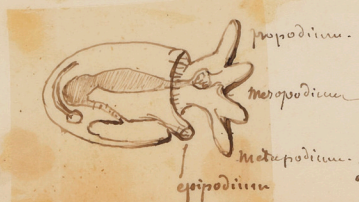 propodium.
mesopodium
metapodium.
epipodium